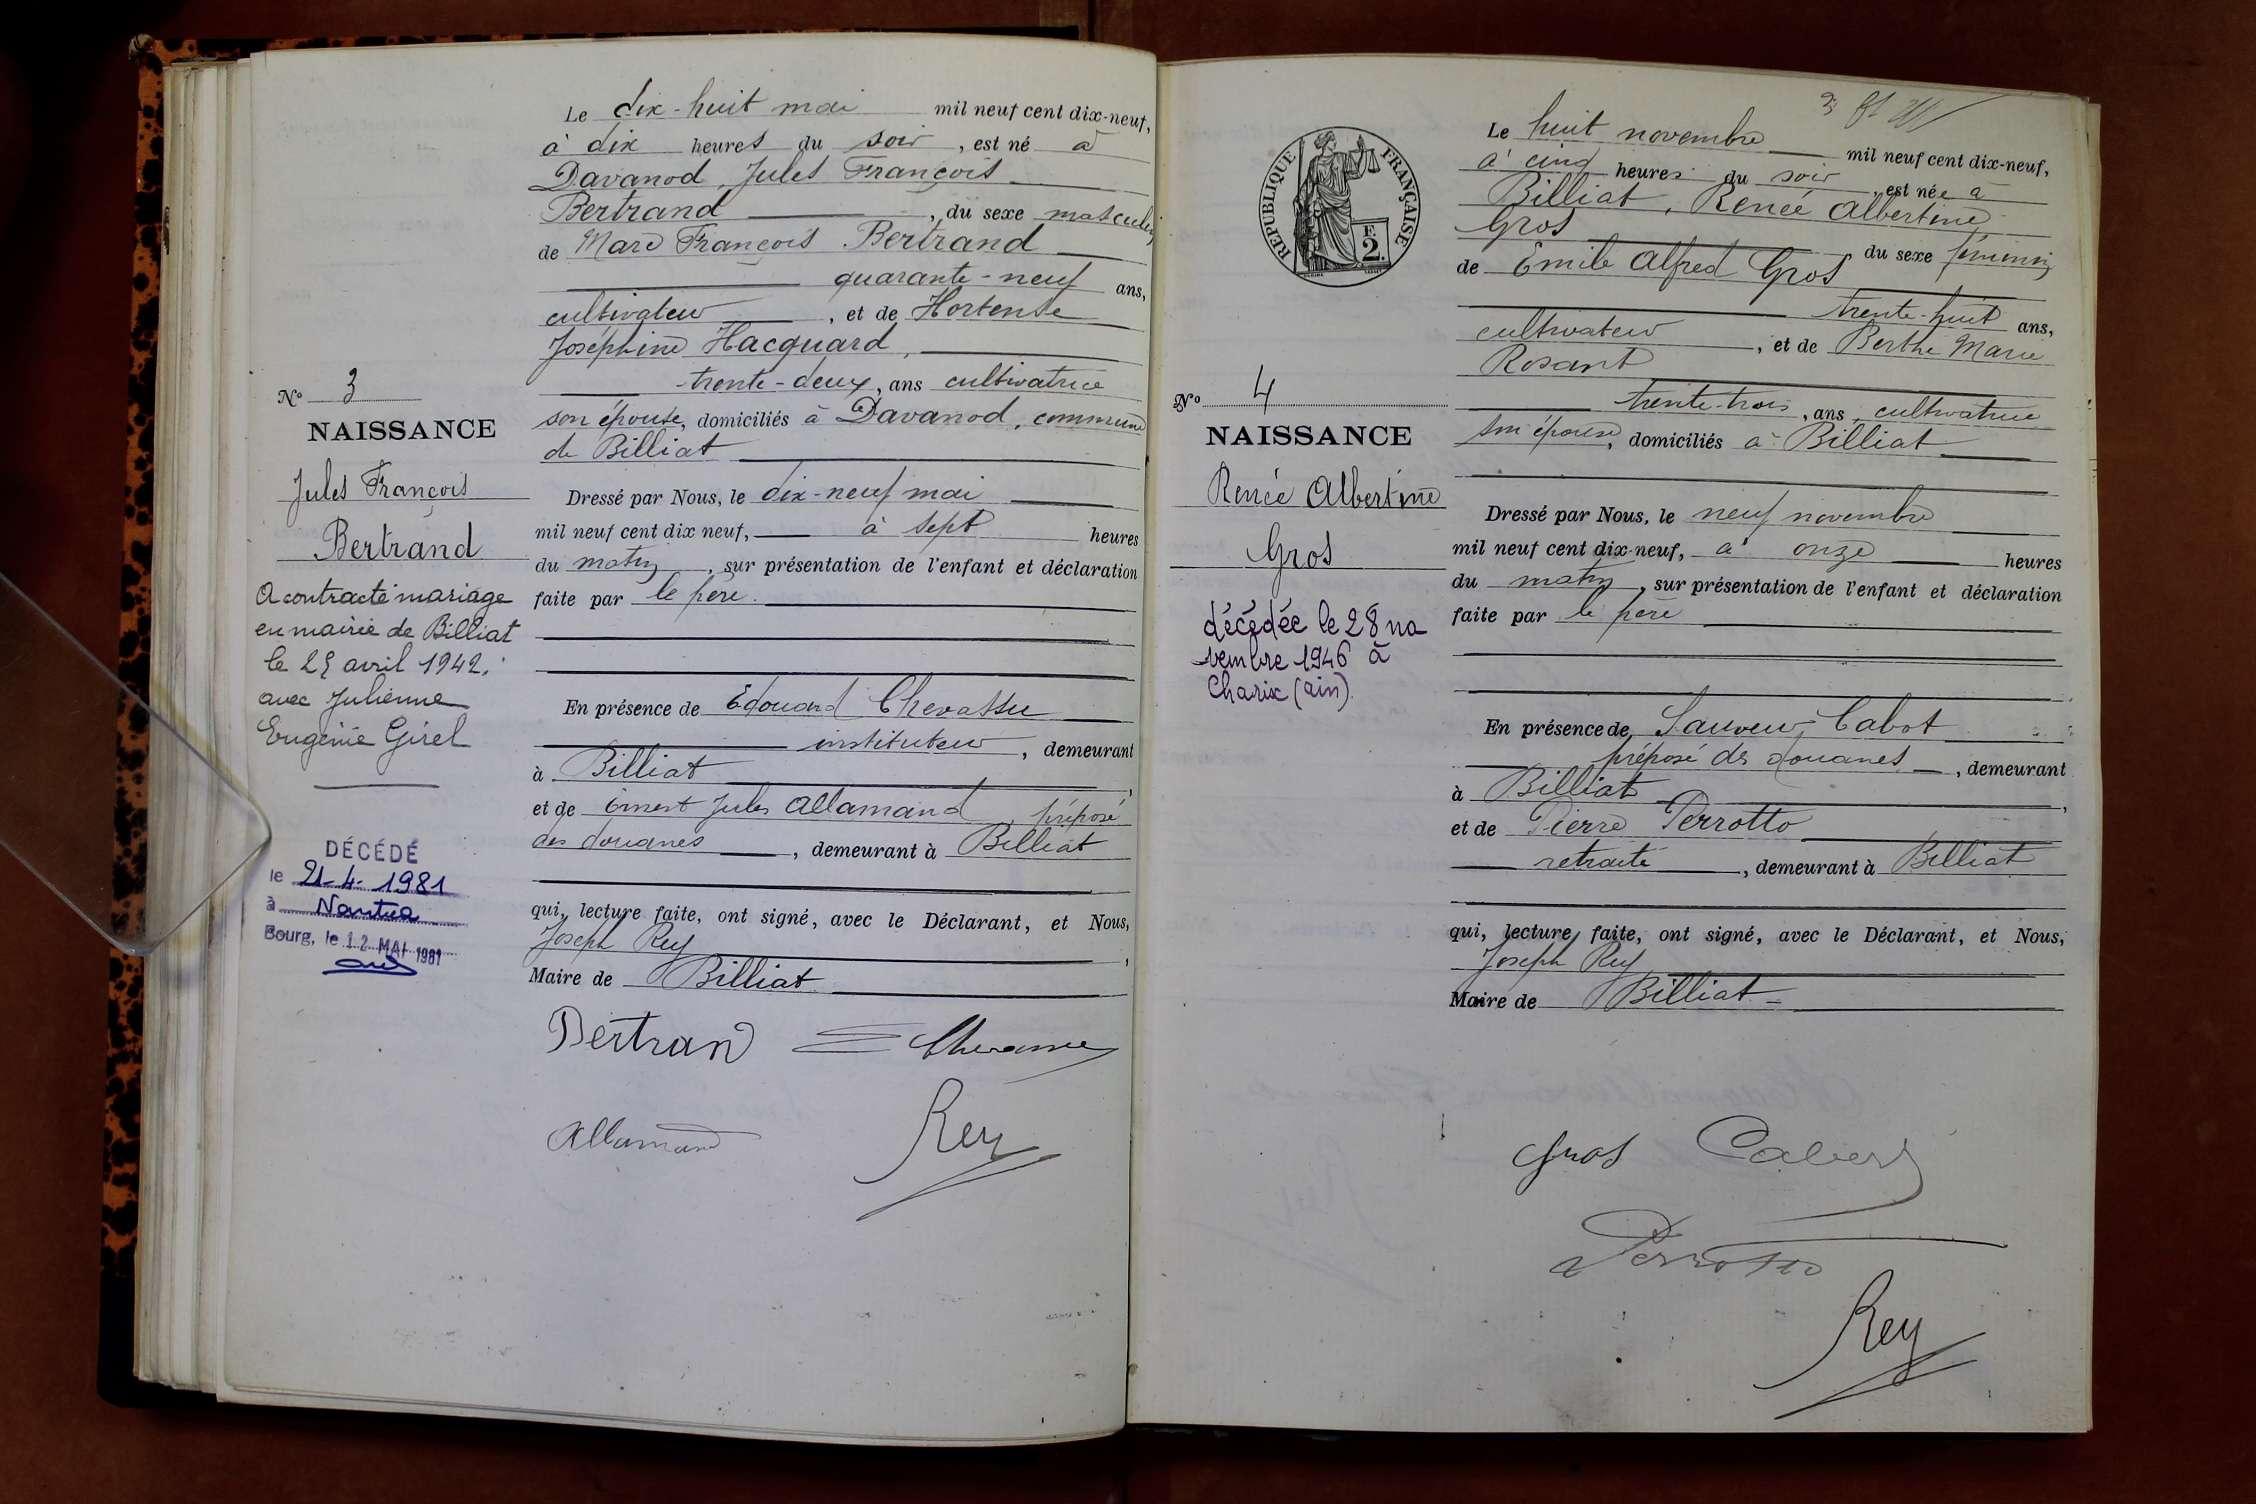 Le dix-huit mai mil neuf cent dix-neuf,
à dix heures du soir, est né à
Davanod, Jules François
Bertrand, du sexe masculin
de Marc François Bertrand
quarante-neuf ans,
cultivateur, et de Hortense
Joséphine Hacquard,
trente-deux, ans cultivatrice
son épouse, domiciliés à Davanod, commune
de Billiat
Dressé par Nous, le dix-neuf mai
mil neuf cent dix neuf, à sept heures
du matin, sur présentation de l'enfant et déclaration
faite par le père.
En présence de Edouard Chevassu
instituteur, demeurant
à Billiat,
et de Ernest Jules Allamand, préposé
des douanes, demeurant à Billiat
qui, lecture faite, ont signé, avec le Déclarant, et Nous,
Joseph Rey,
Maire de Billiat
Bertrand
Allamand
Rey
No 3
NAISSANCE
Jules François
Bertrand
A contracté mariage
en mairie de Billiat
le avril 1942.
avec Julienne
Eugénie Girel
DÉCÉDÉ
le 21-4-1981
à Nantua
Bourg, le 12 MAI 1981
RÉPUBLIQUE FRANÇAISE
F.
2.
No 4
NAISSANCE
Renée Albertine
Gros
décédée le 28 no
vembre 1946 à
Charix (ain).
Le huit novembre mil neuf cent dix-neuf,
à cinq heures du soir, est née à
Billiat, Renée Albertine
Gros du sexe féminin
de Emile Alfred Gros
trente-huit ans,
cultivateur, et de Berthe Marie
Rosant
trente-trois, ans, cultivatrice
son épouse, domiciliés à Billiat
Dressé par Nous, le neuf novembre
mil neuf cent dix-neuf, à onze heures
du matin, sur présentation de l'enfant et déclaration
faite par le père
En présence de Sauveur Cabot
préposé des douanes, demeurant
à Billiat,
et de Pierre Perrotto
retraité, demeurant à Billiat
qui, lecture faite, ont signé, avec le Déclarant, et Nous,
Joseph Rey
Maire de Billiat
Gros
Perrotto
Rey